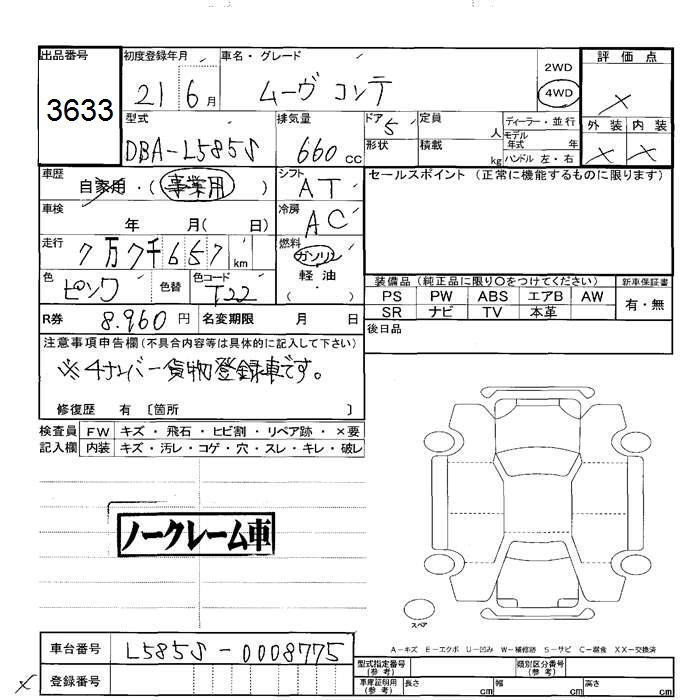 出品番号
3633
初度登録年月
21 6 月
車名・グレード
ムーヴ コンテ
2WD
4WD
評価点
×
外装 内装
× ×
型式
DBA-L585S
排気量
660 cc
ドア 5
形状
定員
人
積載
kg
ディーラー・並行
モデル
年式 年
ハンドル 左・右
車歴
自家用・(事業用)
シフト
AT
冷房
AC
車検
年 月( 日)
走行
7万7千657 km
燃料
ガソリン
軽油
( )
色
ピンク
色替
色コード
T22
R券
8.960 円
名変期限 月 日
セールスポイント(正常に機能するものに限ります)
装備品(純正品に限り○をつけてください)
PS PW ABS エアB AW
SR ナビ TV 本革
新車保証書
有・無
後日品
注意事項申告欄(不具合内容等は具体的に記入して下さい)
※4ナンバー貨物登録車です。
修復歴 有 〔箇所 〕
検査員
記入欄
FW キズ・飛石・ヒビ割・リペア跡・×要
内装 キズ・汚レ・コゲ・穴・スレ・キレ・破レ
ノークレーム車
スペア
A-キズ E-エクボ U-凹み W-補修跡 S-サビ C-腐食 XX-交換済
車台番号
L585S-0008775
× 登録番号
型式指定番号
(参考)
類別区分番号
(参考)
車庫証明用
(参考)
長さ cm 幅 cm 高さ cm